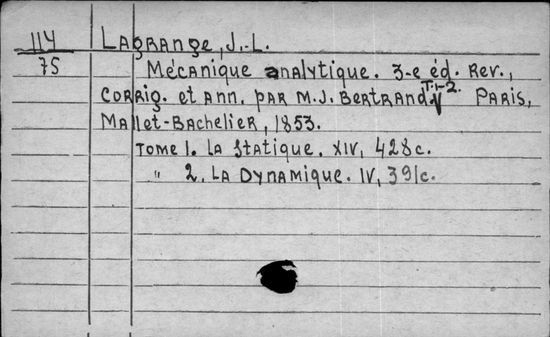 114 Lagrange, J.-L.
75 Mécanique analytique. 3-e éd. Rev.,
corrig. et ann. par M.J. Bertrand. T.1-2. Paris,
Mallet-Bachelier, 1853.
Tome 1. La Statique. XIV, 428c.
" 2. La Dynamique. IV, 391c.